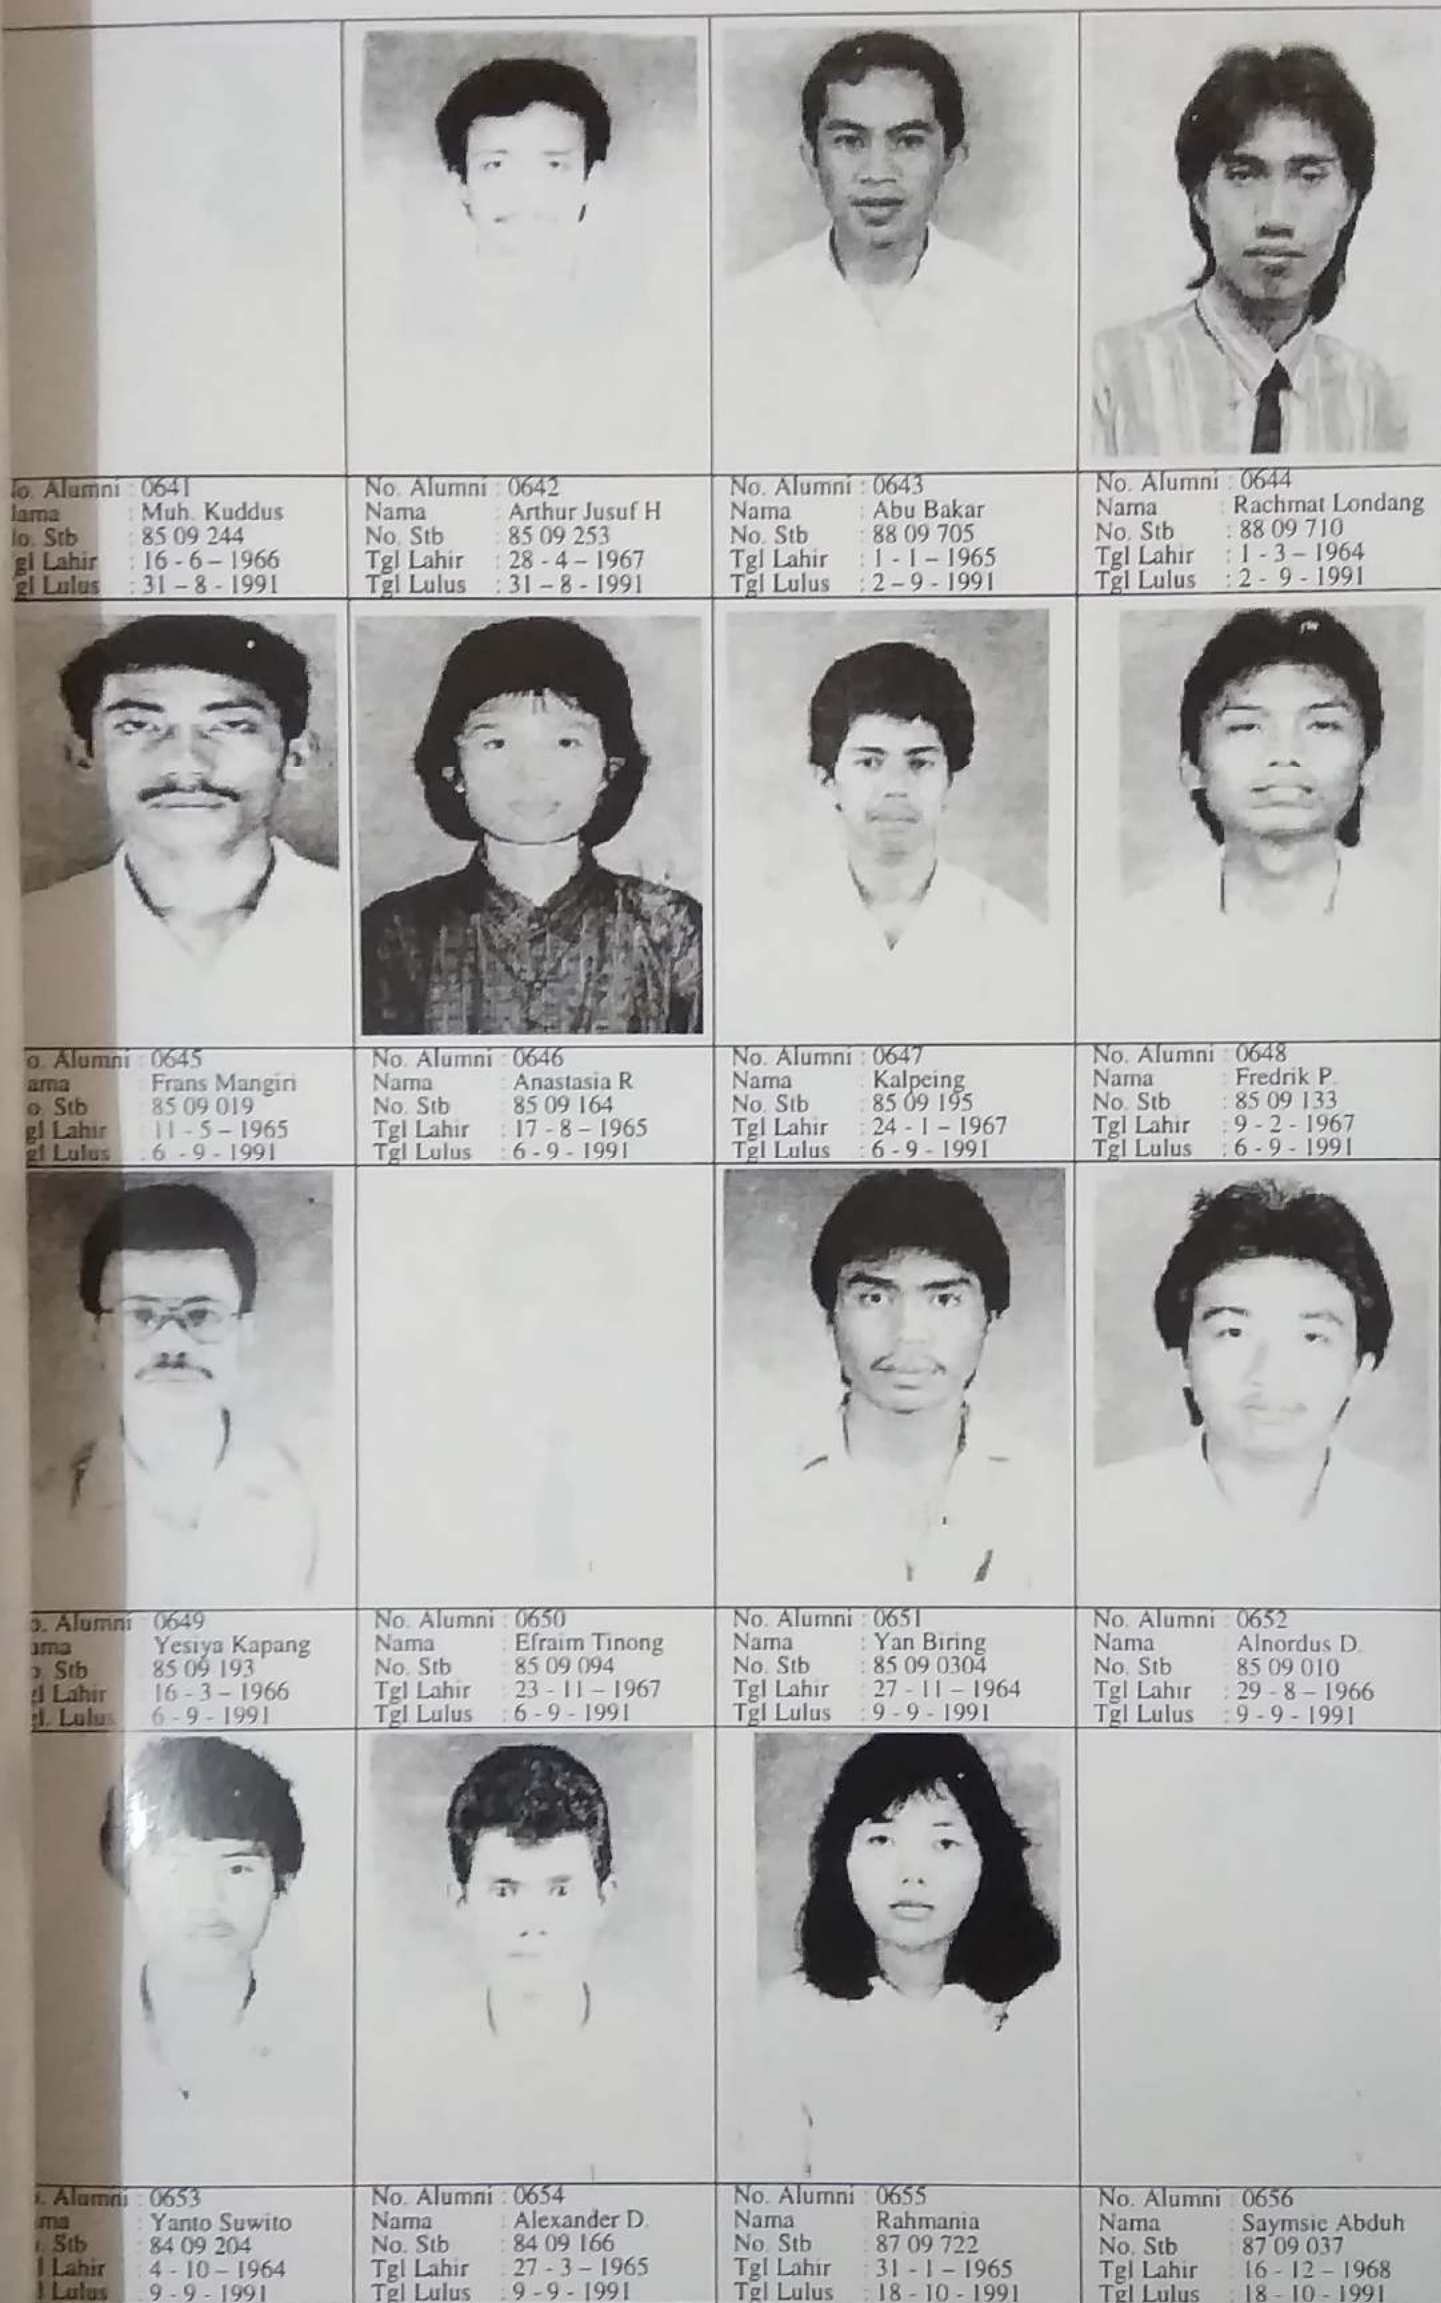 o. Alumni : 0641
ama : Muh. Kuddus
o. Stb : 85 09 244
gl Lahir : 16 - 6 – 1966
gl Lulus : 31 – 8 - 1991
No. Alumni : 0642
Nama : Arthur Jusuf H
No. Stb : 85 09 253
Tgl Lahir : 28 - 4 – 1967
Tgl Lulus : 31 – 8 - 1991
No. Alumni : 0643
Nama : Abu Bakar
No. Stb : 88 09 705
Tgl Lahir : 1 - 1 – 1965
Tgl Lulus : 2 – 9 - 1991
No. Alumni : 0644
Nama : Rachmat Londang
No. Stb : 88 09 710
Tgl Lahir : 1 - 3 – 1964
Tgl Lulus : 2 - 9 - 1991
o. Alumni : 0645
ama : Frans Mangiri
o. Stb : 85 09 019
gl Lahir : 11 - 5 – 1965
gl Lulus : 6 - 9 - 1991
No. Alumni : 0646
Nama : Anastasia R
No. Stb : 85 09 164
Tgl Lahir : 17 - 8 – 1965
Tgl Lulus : 6 - 9 - 1991
No. Alumni : 0647
Nama : Kalpeing
No. Stb : 85 09 195
Tgl Lahir : 24 - 1 – 1967
Tgl Lulus : 6 - 9 - 1991
No. Alumni : 0648
Nama : Fredrik P.
No. Stb : 85 09 133
Tgl Lahir : 9 - 2 - 1967
Tgl Lulus : 6 - 9 - 1991
o. Alumni : 0649
ama : Yesiya Kapang
o. Stb : 85 09 193
l Lahir : 16 - 3 – 1966
l. Lulus : 6 - 9 - 1991
No. Alumni : 0650
Nama : Efraim Tinong
No. Stb : 85 09 094
Tgl Lahir : 23 - 11 – 1967
Tgl Lulus : 6 - 9 - 1991
No. Alumni : 0651
Nama : Yan Biring
No. Stb : 85 09 0304
Tgl Lahir : 27 - 11 – 1964
Tgl Lulus : 9 - 9 - 1991
No. Alumni : 0652
Nama : Alnordus D.
No. Stb : 85 09 010
Tgl Lahir : 29 - 8 – 1966
Tgl Lulus : 9 - 9 - 1991
. Alumni : 0653
ma : Yanto Suwito
. Stb : 84 09 204
l Lahir : 4 - 10 – 1964
l Lulus : 9 - 9 - 1991
No. Alumni : 0654
Nama : Alexander D.
No. Stb : 84 09 166
Tgl Lahir : 27 - 3 – 1965
Tgl Lulus : 9 - 9 - 1991
No. Alumni : 0655
Nama : Rahmania
No. Stb : 87 09 722
Tgl Lahir : 31 - 1 – 1965
Tgl Lulus : 18 - 10 - 1991
No. Alumni : 0656
Nama : Saymsie Abduh
No. Stb : 87 09 037
Tgl Lahir : 16 - 12 – 1968
Tgl Lulus : 18 - 10 - 1991